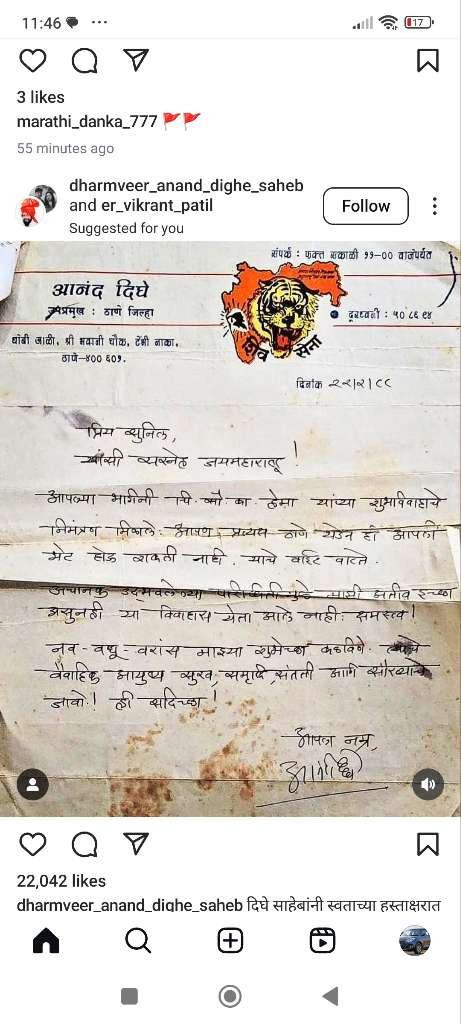 11:46
17
3 likes
marathi_danka_777 🚩🚩
55 minutes ago
dharmveer_anand_dighe_saheb
and er_vikrant_patil
Suggested for you
Follow
संपर्क : फक्त सकाळी ११-०० वाजेपर्यंत
आनंद दिघे
प्रमुख : ठाणे जिल्हा
धोबी आळी, श्री भवानी चौक, टेंभी नाका,
ठाणे-४०० ६०१.
दूरध्वनी : ५० ८६ ८४
सेना
दिनांक २२|२|८८
प्रिय सुनिल,
सस्नेह जयमहाराष्ट्र !
आपल्या भगिनी चि. सौ. का. हेमा यांच्या शुभविवाहाचे
निमंत्रण मिळाले. आपण प्रत्यक्ष ठाणे येऊन ही आपली
भेट होऊ शकली नाही. याचे वाईट वाटते.
अचानक उद्भवलेल्या परिस्थितीमुळे माझी अतीव इच्छा
असुनही या विवाहास येता आले नाही. क्षमस्व !
नव-वधू-वरांस माझ्या शुभेच्छा कळविणे.
वैवाहिक आयुष्य सुख, समृद्धि, संतती आणि सौख्याचे
जावो ! ही सदिच्छा !
आपला नम्र,
22,042 likes
dharmveer_anand_dighe_saheb दिघे साहेबांनी स्वताच्या हस्ताक्षरात